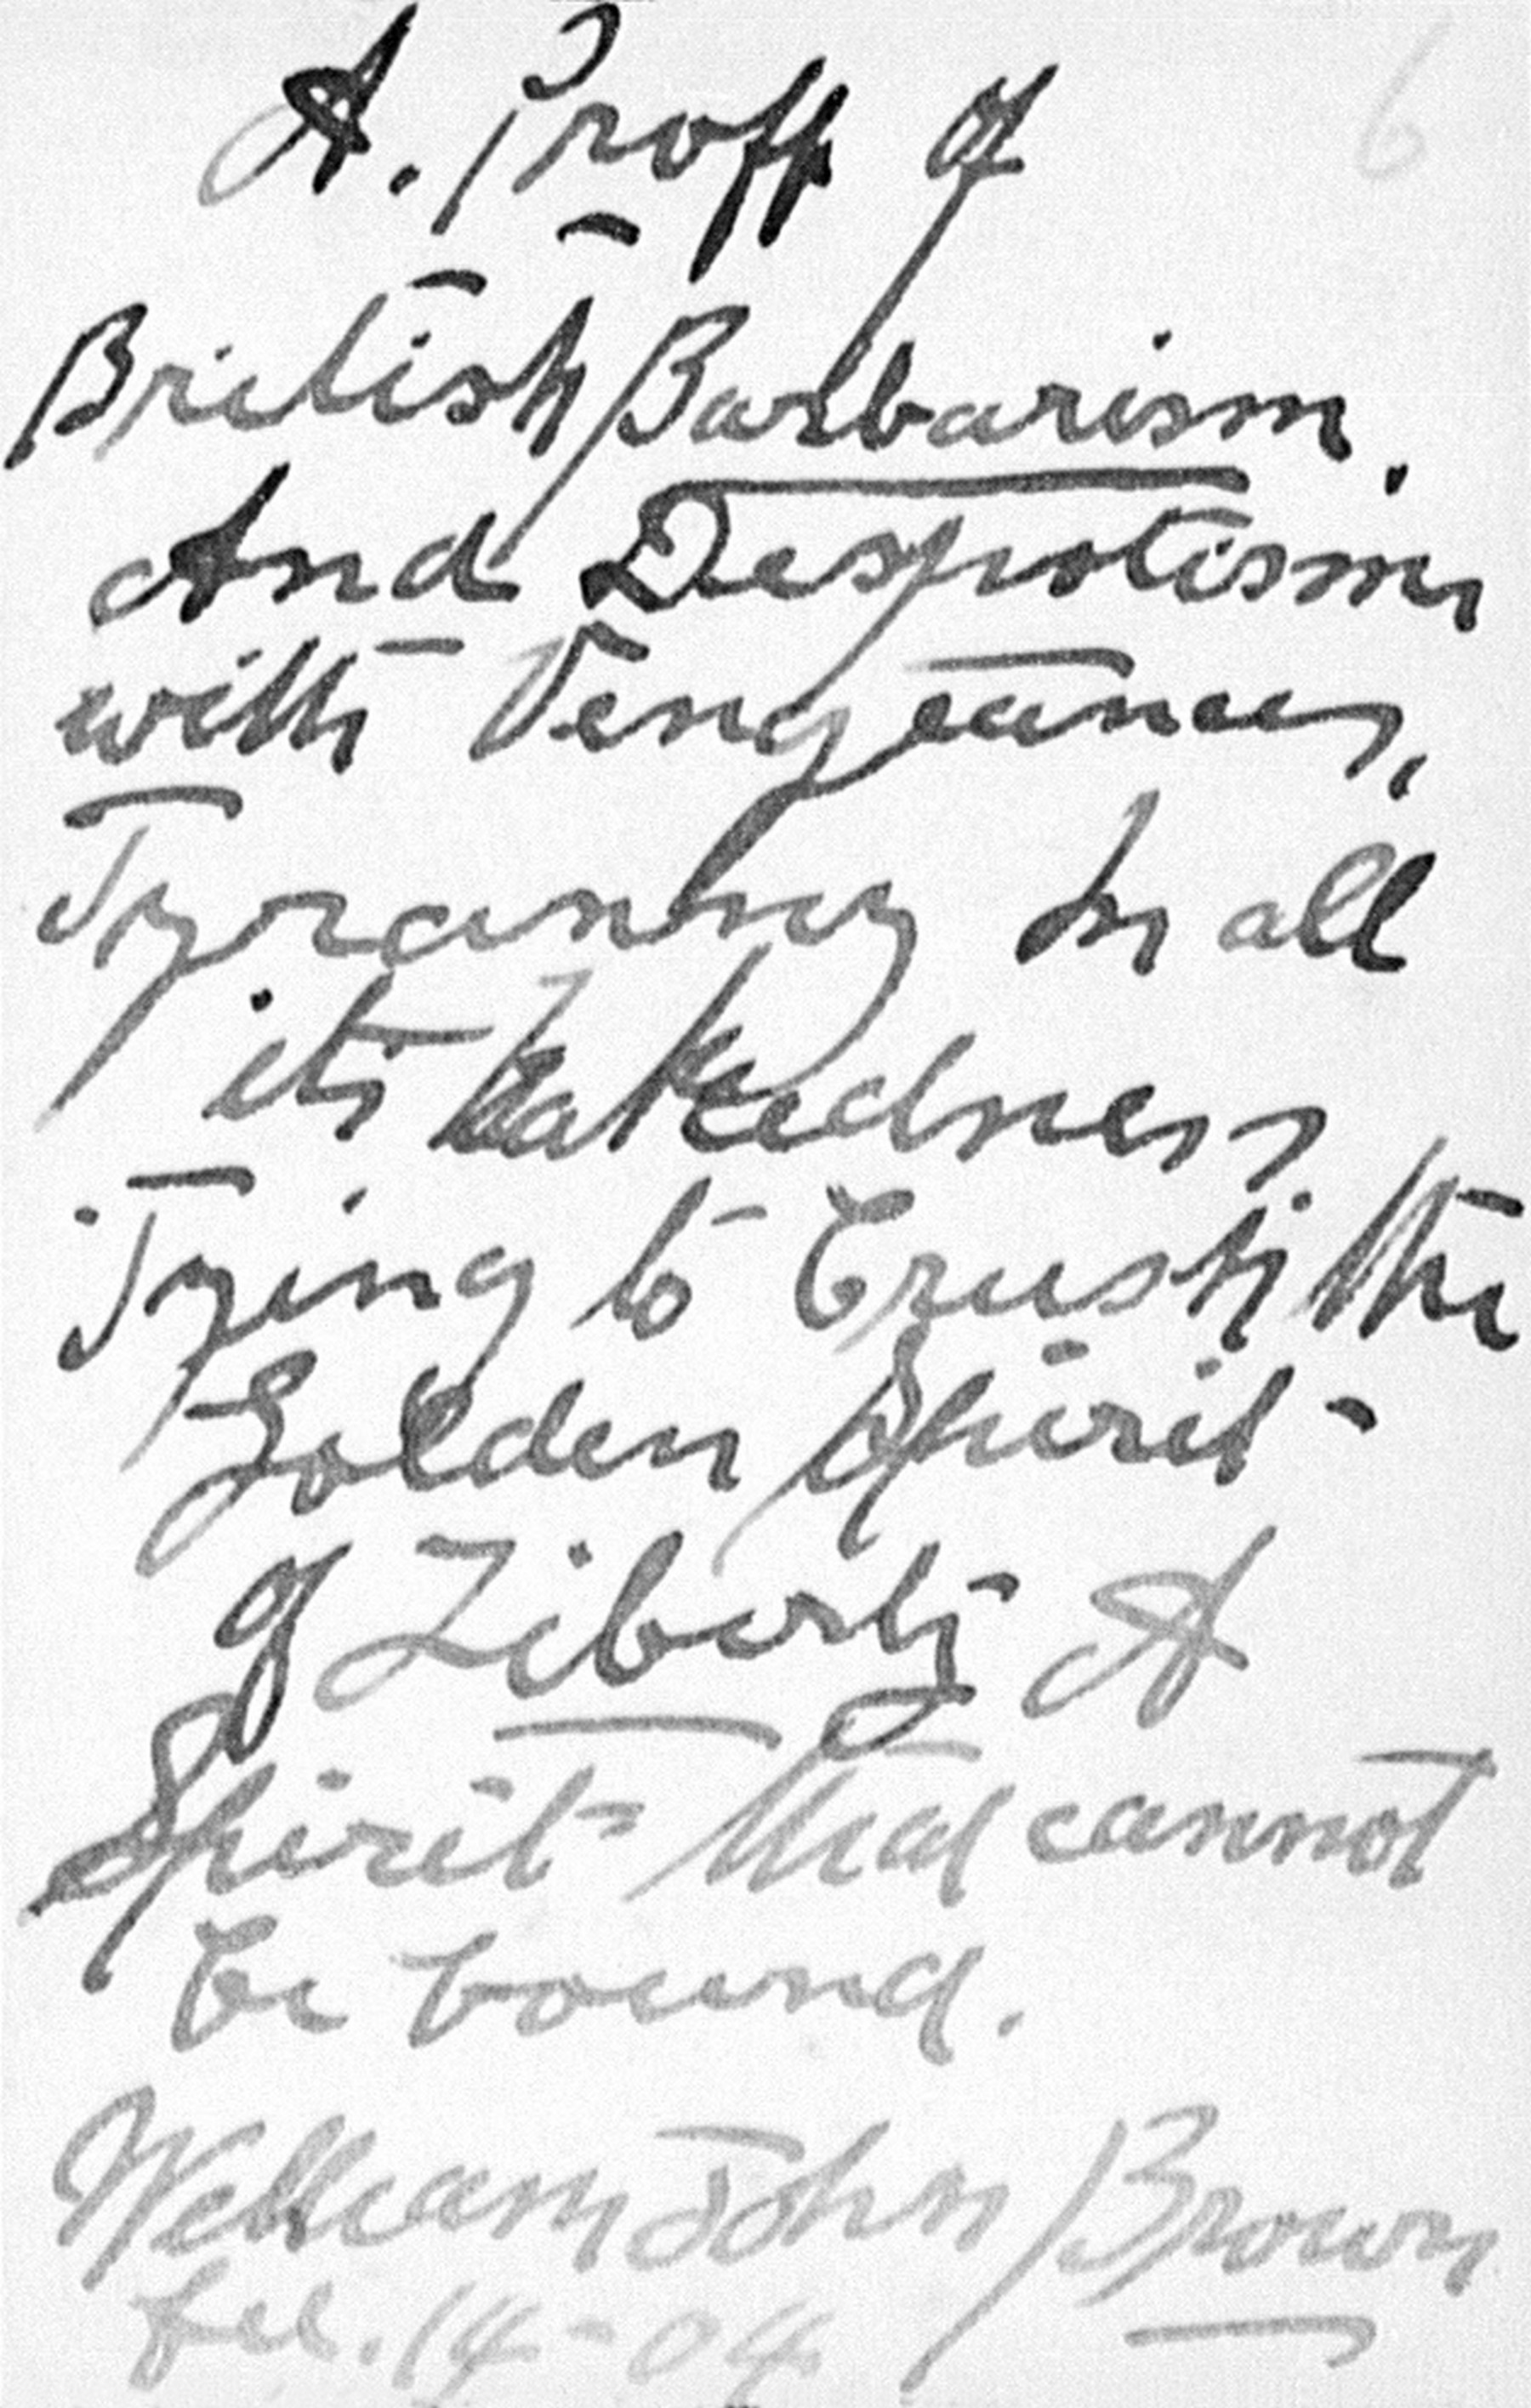 6
A. Proff of
British Barbarism.
And Despotism
with Vengeance,
Tyranny In all
its Nakedness
Trying to Crush the
Golden Spirit
of Liberty A
Spirit that cannot
be bound.
William John Brown
14-04